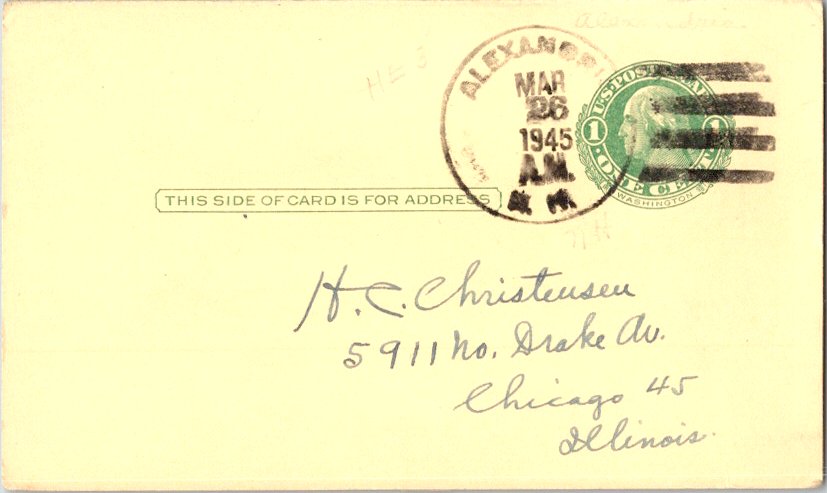 Alexandria.
ALEXANDRIA
MAR
26
1945
A.M.
N. H.
U.S. POSTAL CARD
1 1
ONE CENT
WASHINGTON
THIS SIDE OF CARD IS FOR ADDRESS
NH
H. C. Christensen
5911 No. Drake Av.
Chicago 45
Illinois.